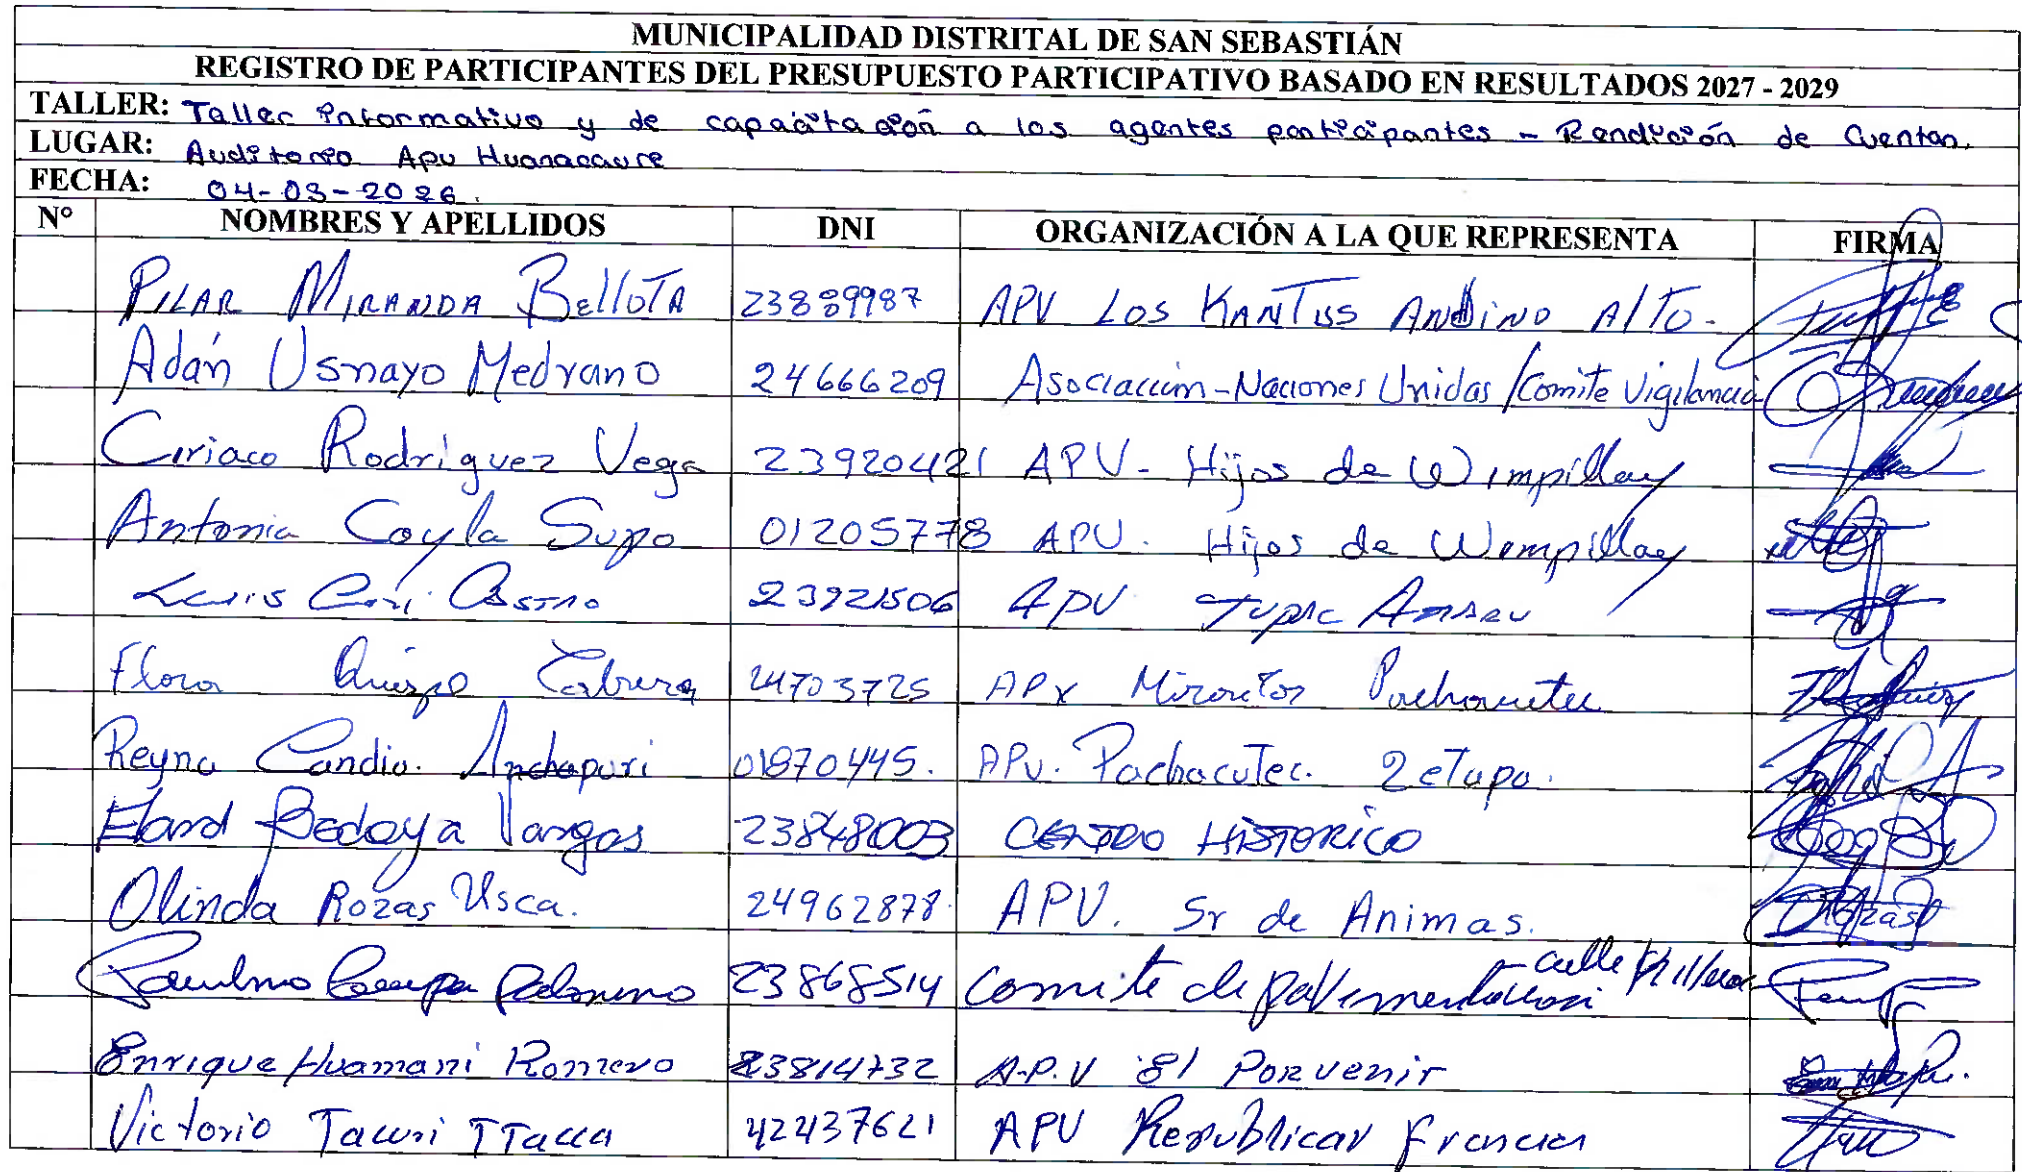 MUNICIPALIDAD DISTRITAL DE SAN SEBASTIÁN
REGISTRO DE PARTICIPANTES DEL PRESUPUESTO PARTICIPATIVO BASADO EN RESULTADOS 2027 - 2029
TALLER: Taller Informativo y de capacitación a los agentes participantes - Rendición de Cuentas.
LUGAR: Auditorio Apu Huanacaure
FECHA: 04-03-2026.
N° NOMBRES Y APELLIDOS DNI ORGANIZACIÓN A LA QUE REPRESENTA FIRMA
PILAR MIRANDA BELLOTA 23889987 APV LOS KANTUS ANDINO ALTO-
Adán Usmayo Medrano 24666209 Asociación-Naciones Unidas/Comite Vigilancia
Ciriaco Rodriguez Vega 23920421 APV- Hijos de Wimpillay
Antonia Coyla Supo 01205778 APV. Hijos de Wimpillay
Luis Cori Castro 23921506 APV Tupac Amaru
Flora Quispe Cabrera 24703725 APV Mirador Pachacutec
Reyna Candia. Anchapuri 01870445. APV. Pachacutec. 2 etapa.
Elard Bedoya Vargas 23848003 CENTRO HISTORICO
Olinda Rozas Usca. 24962878. APV. Sr de Animas.
Paulino 23868514 Comite de pavimentacion calle
Enrique Huamani Romero 23814732 A.P.V El Porvenir
Victorio Tacuri TTacca 42437621 APV Republica Francia